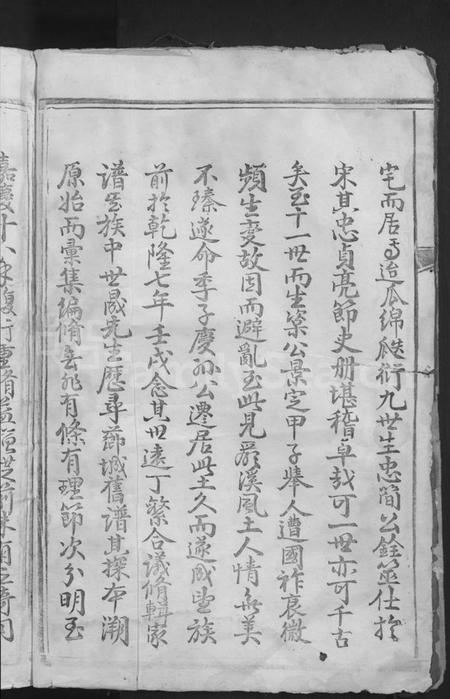 宅而居焉迨瓜綿瓞衍九世生忠簡公銓筮仕於
宋其忠貞亮節史册堪稽卓哉可一世亦可千古
矣至十一世而生築公景定甲子舉人遭國祚衰微
頻生变故因而避亂至此見羅溪風土人情無美
不臻遂命季子慶孙公遷居此土久而遂成望族
前於乾隆七年壬戌念其世遠丁繁合議脩輯蒙
譜名族中世晟先生歷尋薌城舊譜其探本溯
原始而彙集編脩無非有條有理節次分明至
嘉慶十八年復行